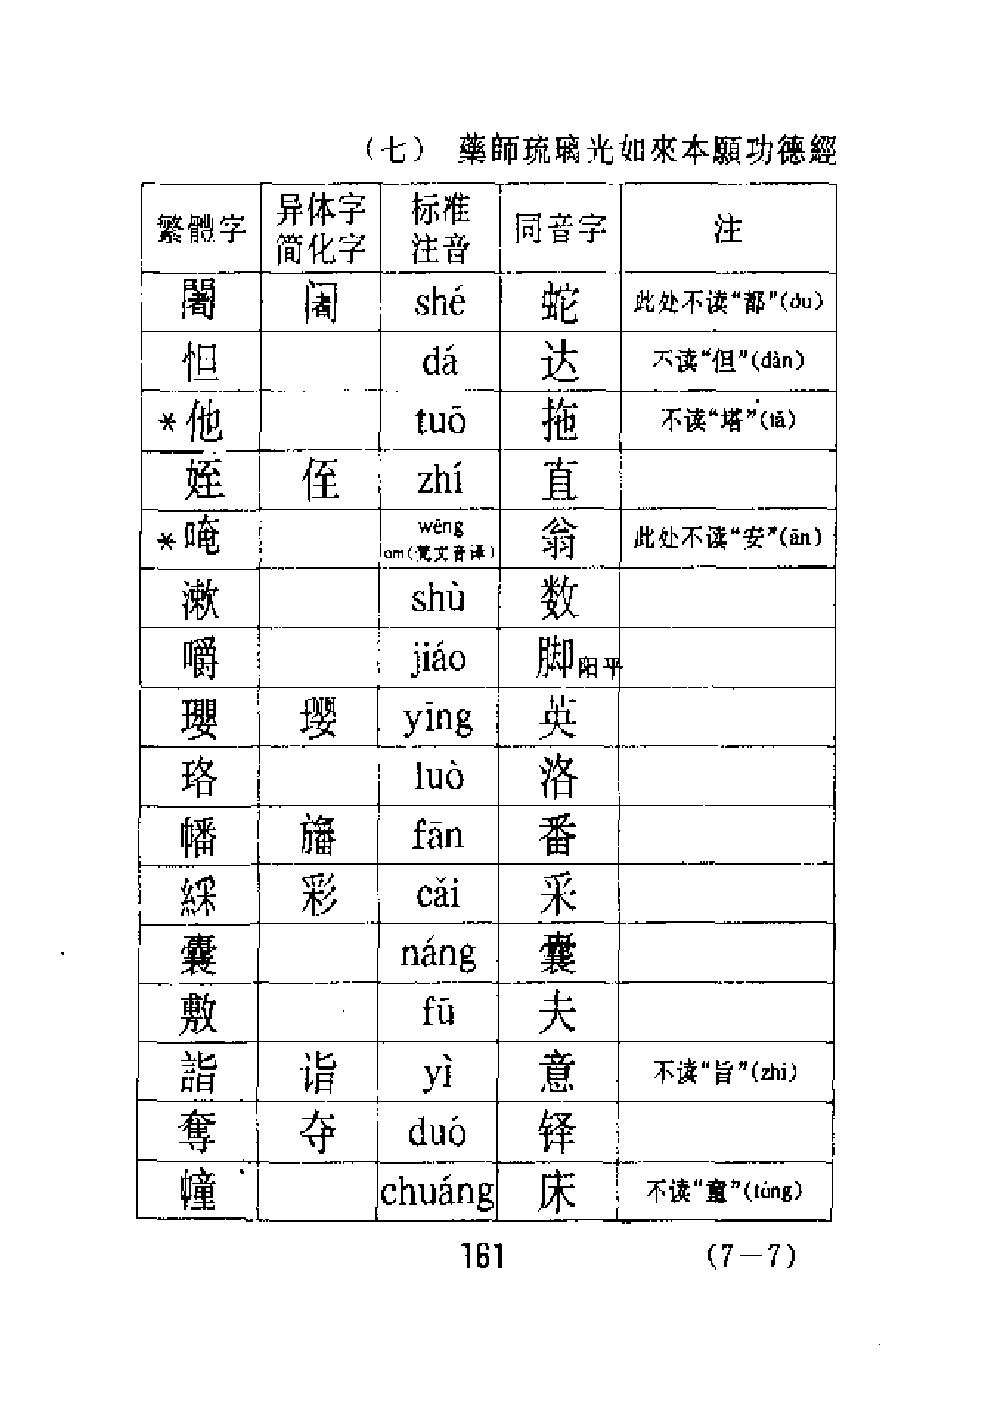 （七） 藥師琉璃光如來本願功德經
繁體字 异体字 简化字 标准注音 同音字 注
闍 阇 shé 蛇 此处不读“都”(dū)
怛 dá 达 不读“但”(dàn)
*他 tuō 拖 不读“塔”(tā)
姪 侄 zhí 直
*唵 wēng om(梵文音译) 翁 此处不读“安”(ān)
漱 shù 数
嚼 jiáo 脚阳平
瓔 璎 yīng 英
珞 luò 洛
幡 旛 fān 番
綵 彩 cǎi 采
囊 náng 囊
敷 fū 夫
詣 诣 yì 意 不读“旨”(zhǐ)
奪 夺 duó 铎
幢 chuáng 床 不读“童”(tóng)
161 （7－7）